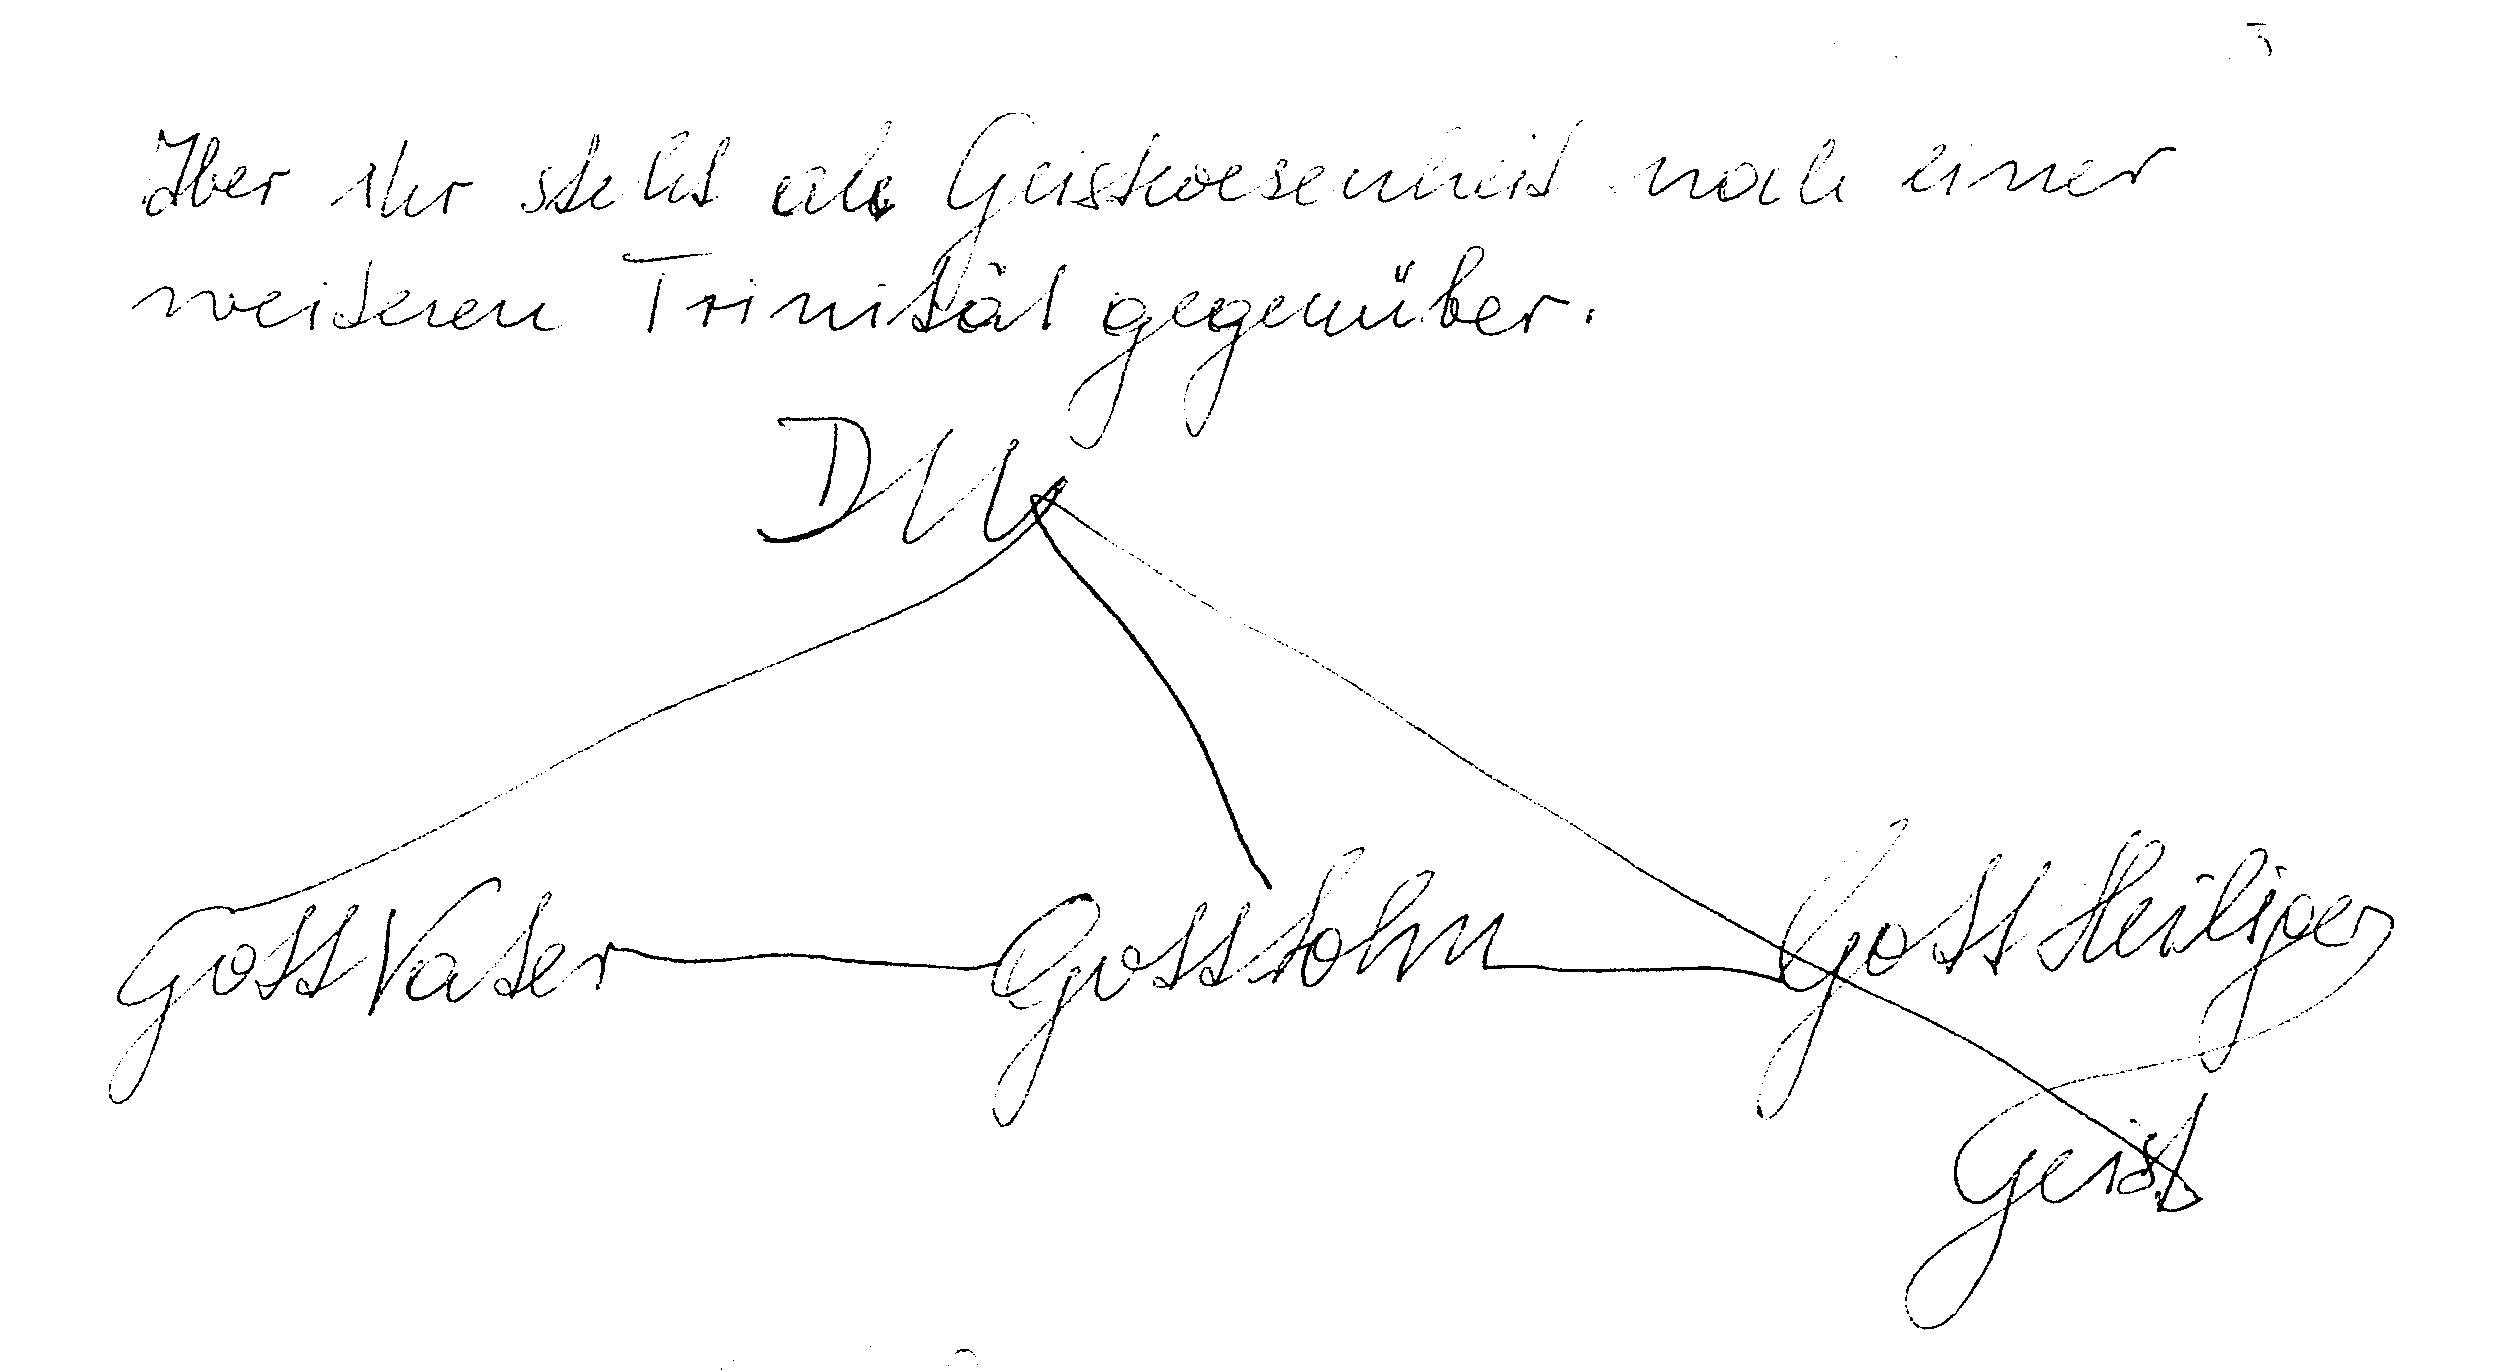 Aber ihr steht als Geistwesenheit noch einer
weiteren Trinität gegenüber.
DU
Gott Vater Gott Sohn Gott Heiliger
Geist